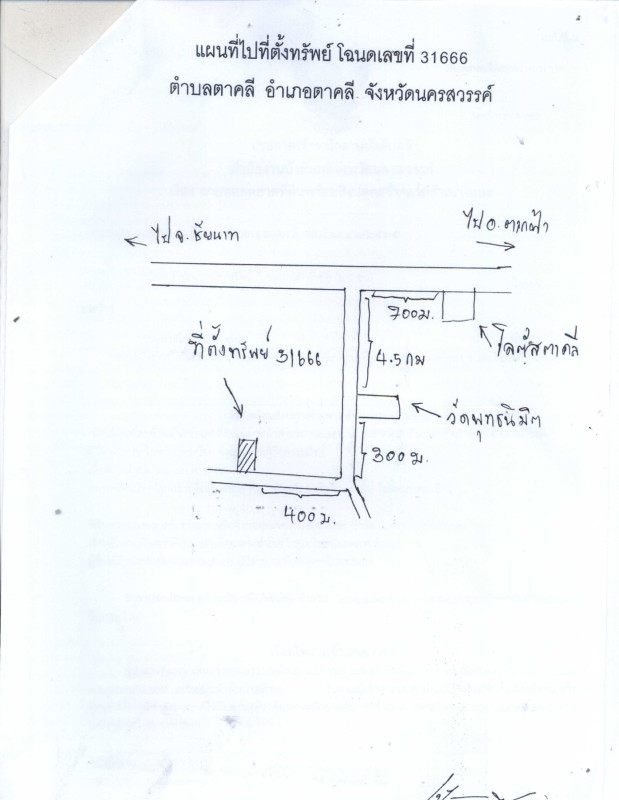 แผนที่ไปที่ตั้งทรัพย์ โฉนดเลขที่ 31666
ตำบลตาคลี อำเภอตาคลี จังหวัดนครสวรรค์
ไป อ. ตากฟ้า
ไป จ. ชัยนาท
700ม.
ที่ตั้งทรัพย์ 31666
4.5 กม
โลตัสตาคลี
วัดพุทธนิมิต
300 ม.
400 ม.